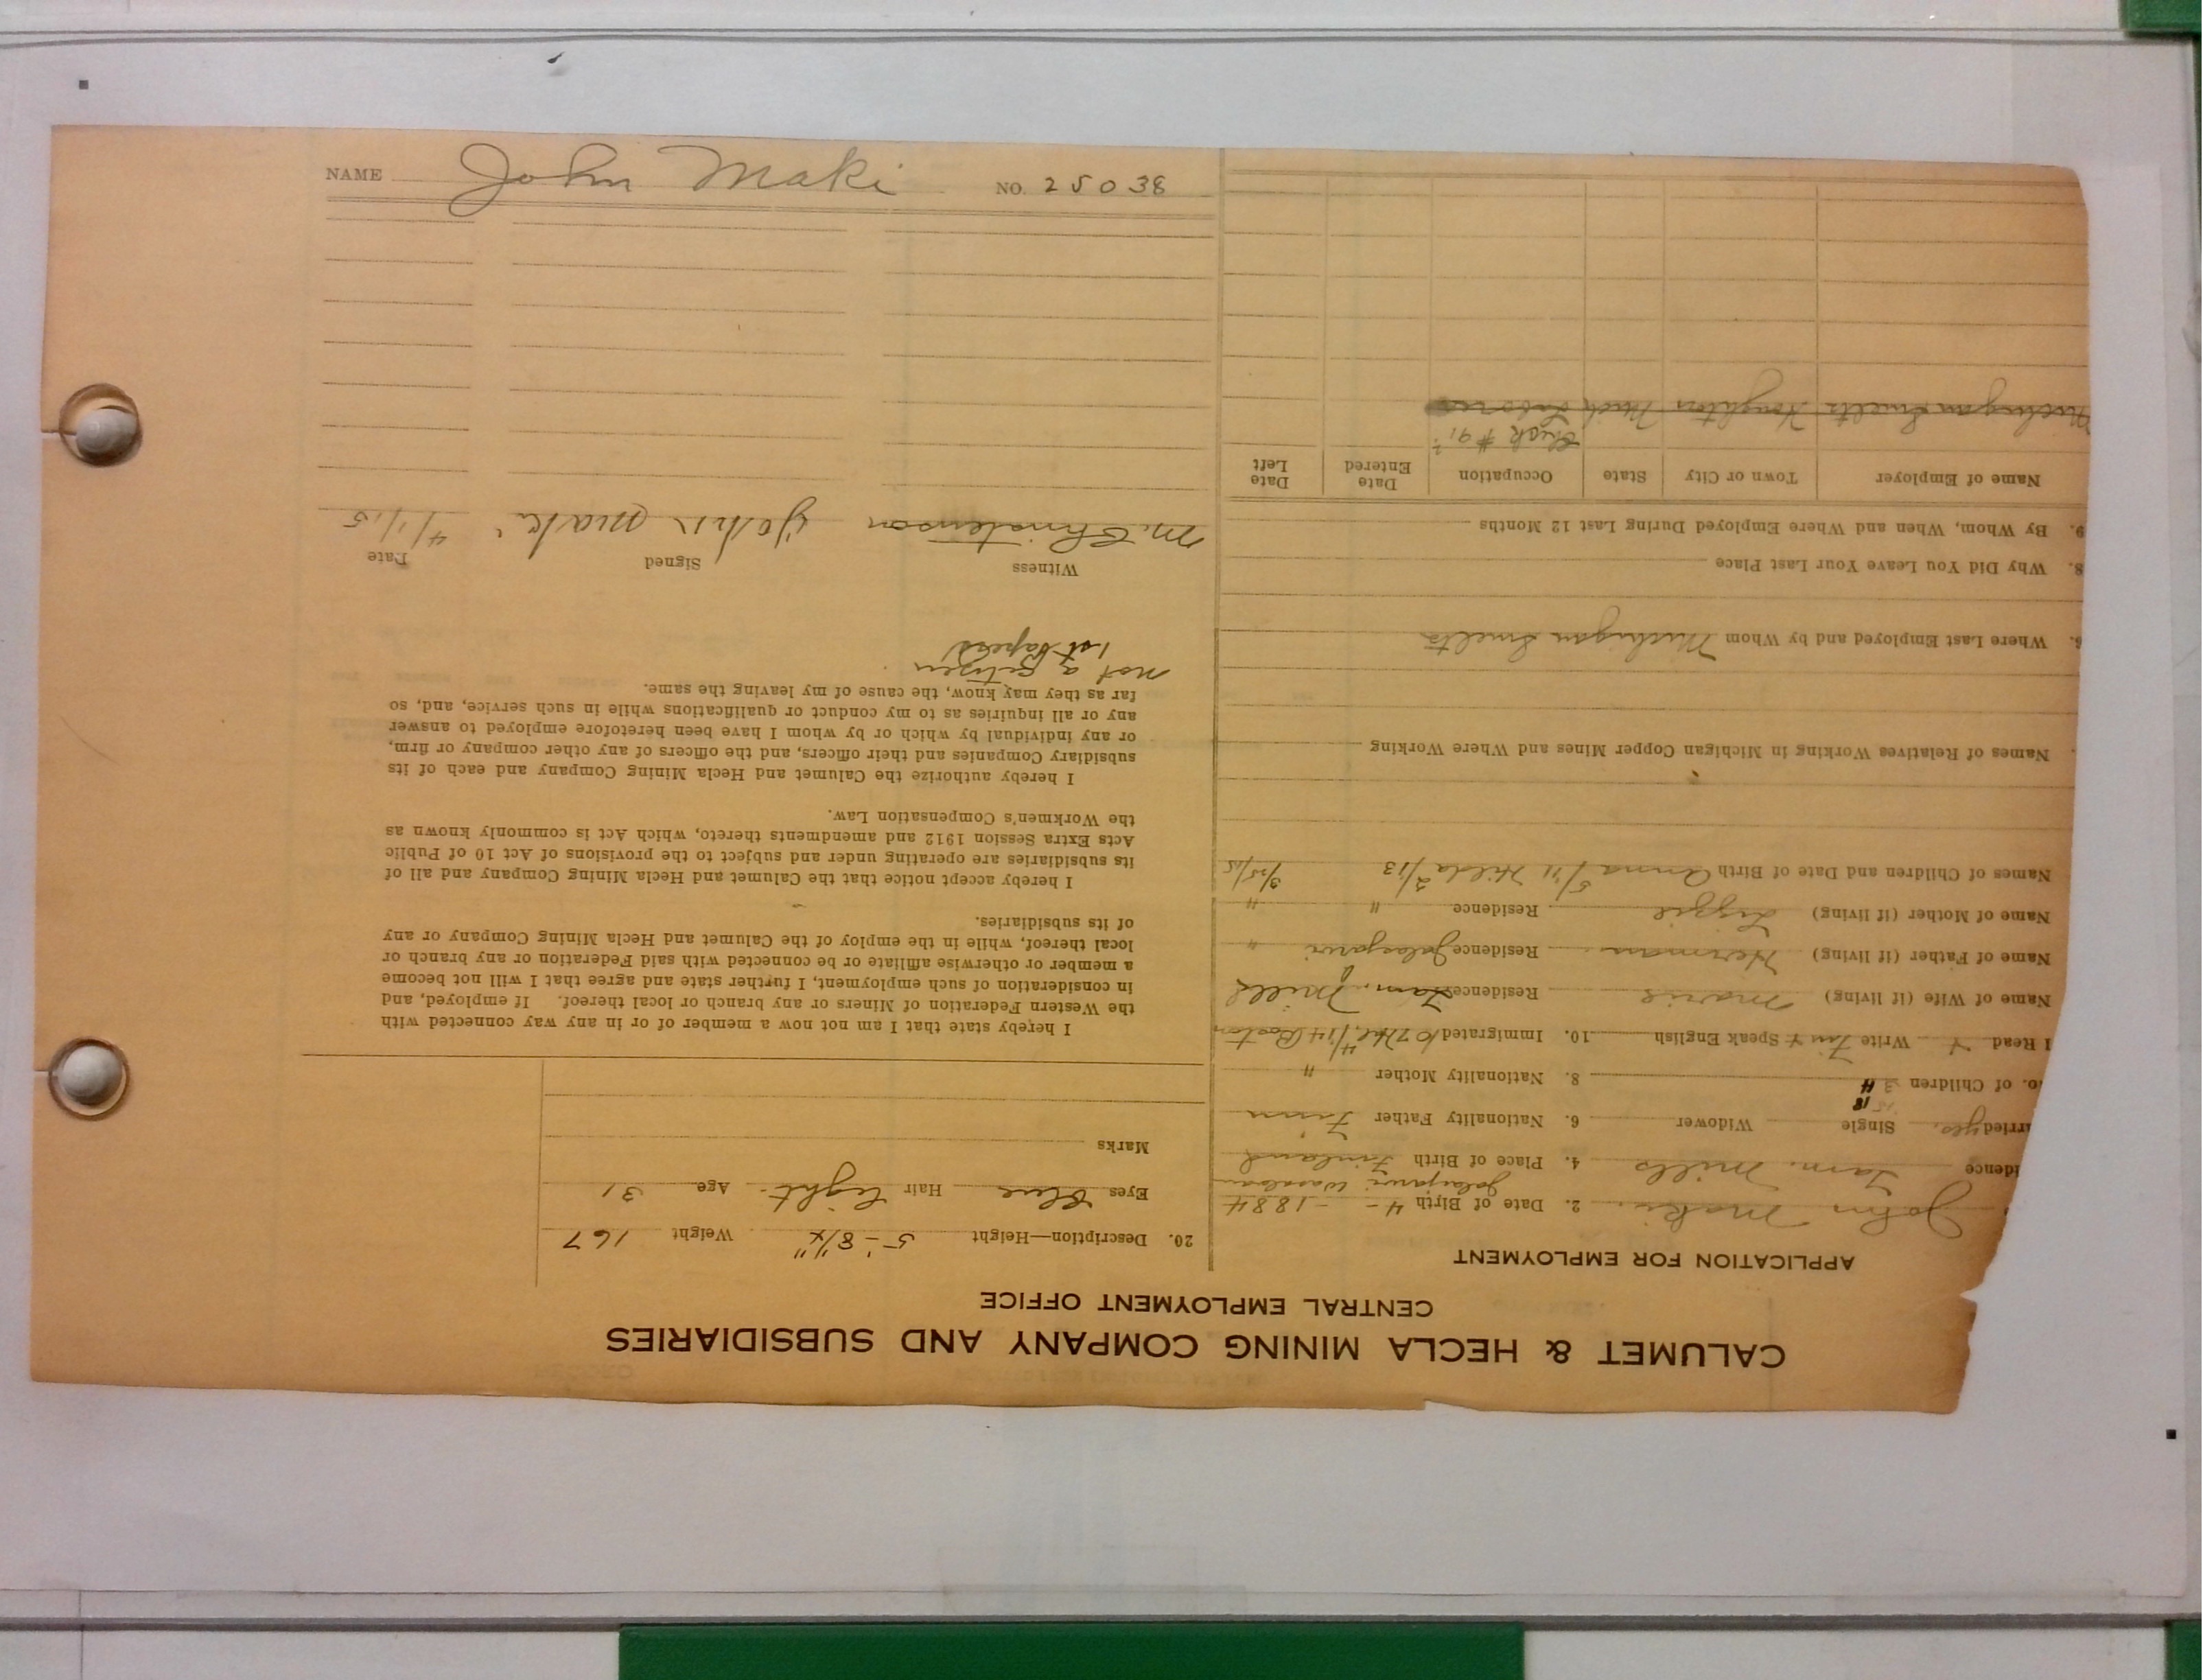 NAME John Maki NO. 25038
CALUMET & HECLA MINING COMPANY AND SUBSIDIARIES
CENTRAL EMPLOYMENT OFFICE
APPLICATION FOR EMPLOYMENT
John Maki 2. Date of Birth 4 - - 1884
Jalasjarvi Wasalaan
idence Tam. Mills 4. Place of Birth Finland
arried yes. Single Widower 6. Nationality Father Finn
15 18
o. of Children 3 4 8. Nationality Mother "
I Read Y Write Fin Y Speak English 10. Immigrated 4/14 Boston
Name of Wife (if living) Marie Residence Tam. Mills
Name of Father (if living) Herman Residence Jalasjarvi "
Name of Mother (if living) Lizzie Residence " "
Names of Children and Date of Birth Anna 5/11 Hilda 2/13 3/25/15
Names of Relatives Working in Michigan Copper Mines and Where Working
6. Where Last Employed and by Whom Michigan Smelts
8. Why Did You Leave Your Last Place
9. By Whom, When and Where Employed During Last 12 Months
Name of Employer Town or City State Occupation Date Entered Date Left
Check # 91
Michigan Smelts Houghton Mich Laborer
20. Description—Height 5'-8 1/4" Weight 167
Eyes Blue Hair light Age 31
Marks
I hereby state that I am not now a member of or in any way connected with
the Western Federation of Miners or any branch or local thereof. If employed, and
in consideration of such employment, I further state and agree that I will not become
a member or otherwise affiliate or be connected with said Federation or any branch or
local thereof, while in the employ of the Calumet and Hecla Mining Company or any
of its subsidiaries.
I hereby accept notice that the Calumet and Hecla Mining Company and all of
its subsidiaries are operating under and subject to the provisions of Act 10 of Public
Acts Extra Session 1912 and amendments thereto, which Act is commonly known as
the Workmen's Compensation Law.
I hereby authorize the Calumet and Hecla Mining Company and each of its
subsidiary Companies and their officers, and the officers of any other company or firm,
or any individual by which or by whom I have been heretofore employed to answer
any or all inquiries as to my conduct or qualifications while in such service, and, so
far as they may know, the cause of my leaving the same.
not a Citizen
1st papers
Witness Signed Date
M. Christenson John Maki 4/1/15